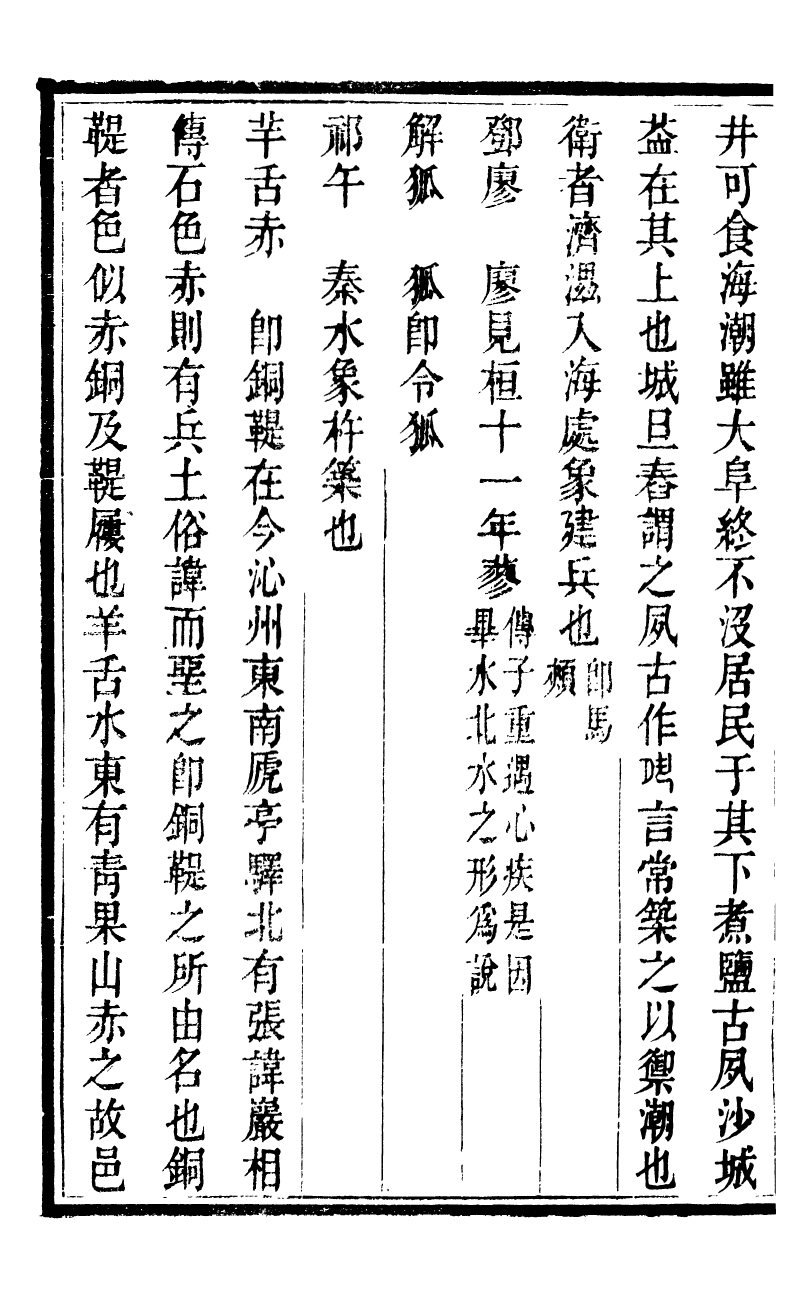 井可食海潮雖大阜終不沒居民于其下煮鹽古夙沙城
葢在其上也城旦舂謂之夙古作𡖊言常築之以禦潮也
衛者濟濕入海處象建兵也即馬頰
鄧廖　廖見桓十一年蓼傳子重遇心疾是因畢水北水之形爲說
解狐　狐卽令狐
祁午　秦水象杵築也
羊舌赤　卽銅鞮在今沁州東南虒亭驛北有張諱巖相
傳石色赤則有兵土俗諱而堊之卽銅鞮之所由名也銅
鞮者色似赤銅及鞮屨也羊舌水東有靑果山赤之故邑